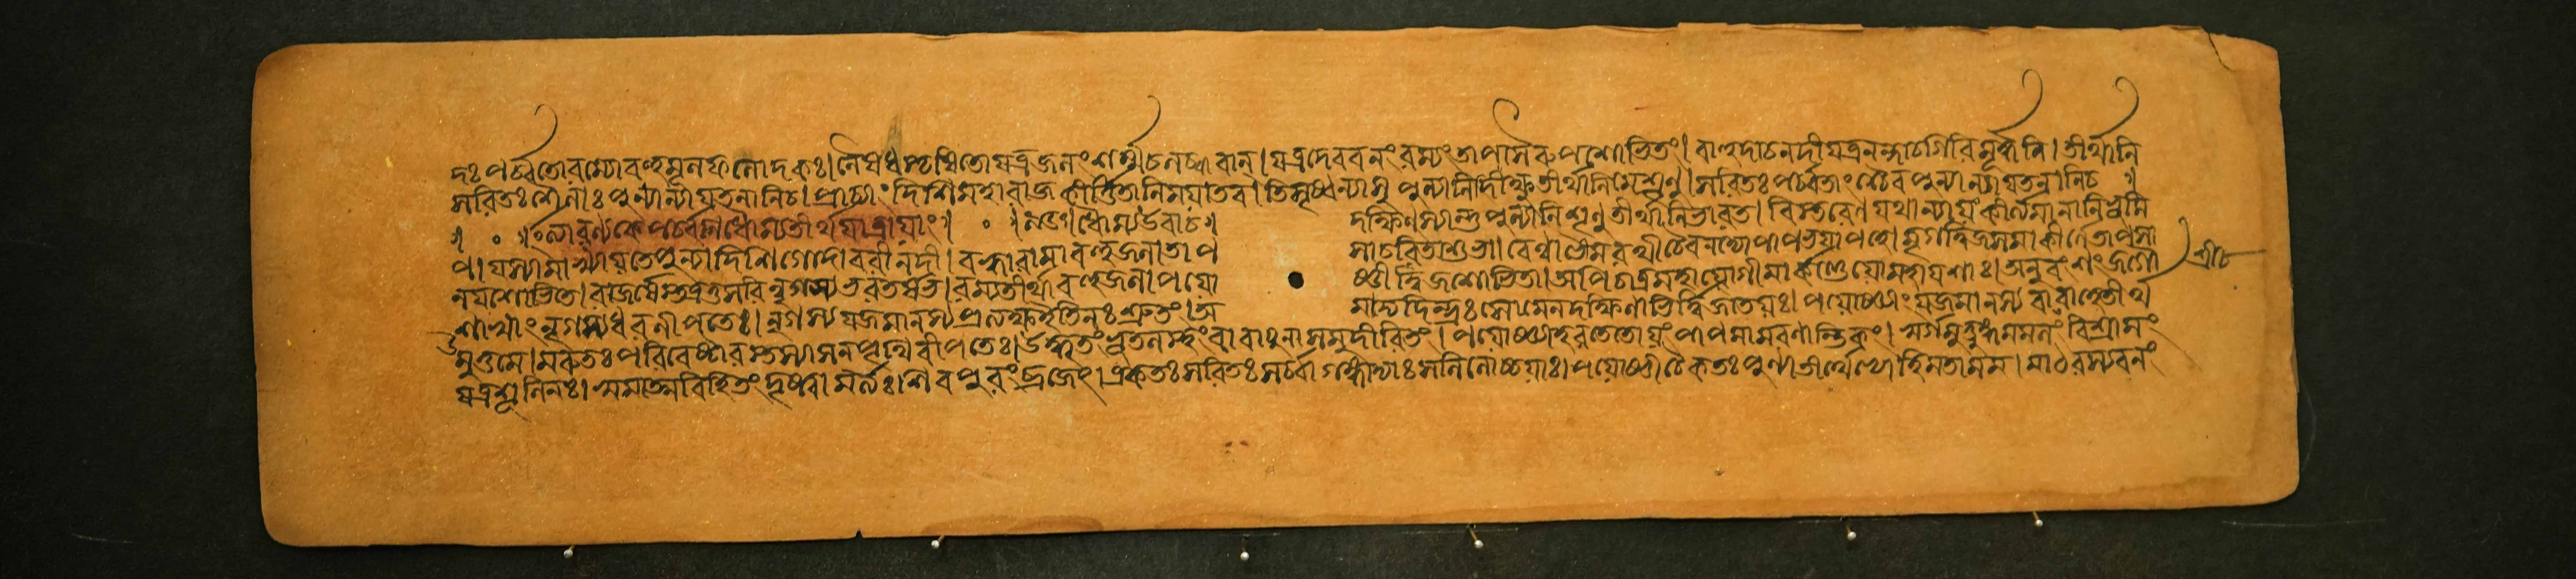 দঃ পর্ব্বতো রম্যো বহুমূলফলোদকঃ। নৈষধস্তৃষিতো যত্র জলং শর্ম্ম চ লব্ধবান্। যত্র দেববনং রম্যং তাপসৈরুপশোভিতং। বাহুদা চ নদী যত্র নন্দা চ গিরিমূর্দ্ধনি। তীর্থানি
সরিতঃ শৈলাঃ পুণ্যান্যায়তনানি চ। প্রাচ্যাং দিশি মহারাজ কীর্ত্তিতানি ময়া তব। তিসৃষ্বন্যাসু পুণ্যানি দিক্ষু তীর্থানি মে শৃণু। সরিতঃ পর্ব্বতাংশ্চৈব পুণ্যান্যায়তনানি চ॥
॥ ॰ ॥ ॰ ত্যারণ্যকে পর্ব্বণি ধৌম্যতীর্থযাত্রায়াং॥ ॰ ॥ ধৌম্য উবাচ॥ দক্ষিণস্যান্তু পুণ্যানি শৃণু তীর্থানি ভারত। বিস্তরেণ যথান্যায়ং কীর্ত্যমানানি ভূমি
প। যস্যামাখ্যায়তে পুণ্যা দিশি গোদাবরী নদী। বহ্বারামা বহুজলা তাপ সাচরিতা শুভা। বেণ্বা ভীমরথী চৈব নদ্যৌ পাপভয়াপহে। মৃগদ্বিজসমাকীর্ণে তাপসা
লয়শোভিতে। রাজর্ষেস্তত্র তু সরিন্নৃগস্য ভরতর্ষভ। রম্যতীর্থা বহুজলা পয়ো ষ্ণী দ্বিজশোভিতা। অপি চাত্র মহাযোগী মার্কণ্ডেয়ো মহাযশাঃ। অনুবংশং জগৌ
গাথাং নৃগস্য ধরণীপতেঃ। নৃগস্য যজমানস্য প্রত্যক্ষমিতি নঃ শ্রুতং। অ মাদ্যদিন্দ্রঃ সোমেন দক্ষিণাভির্দ্বিজাতয়ঃ। পয়োষ্ণ্যাং যজমানস্য বারাহে তীর্থ
মুত্তমে। মরুতঃ পরিবেষ্টারস্তস্যাসন্ পৃথিবীপতেঃ। উদ্ধৃতং ভূতলস্থং বা বায়ুনা সমুদীরিতং। পয়োষ্ণ্যা হরতে তোয়ং পাপমামরণান্তিকং। স্বর্গমুত্তুঙ্গমমলং
যত্র শূলিনঃ। স্বমাত্মবিহিতং দৃষ্ট্বা মর্ত্যঃ শিবপুরং ব্রজেৎ। একতঃ সরিতঃ সর্ব্বা গঙ্গাদ্যাঃ সলিলোচ্চয়াঃ। পয়োষ্ণী চৈকতঃ পুণ্যা তীর্থেভ্যো হি মতা মম। মাঠরস্য বনং